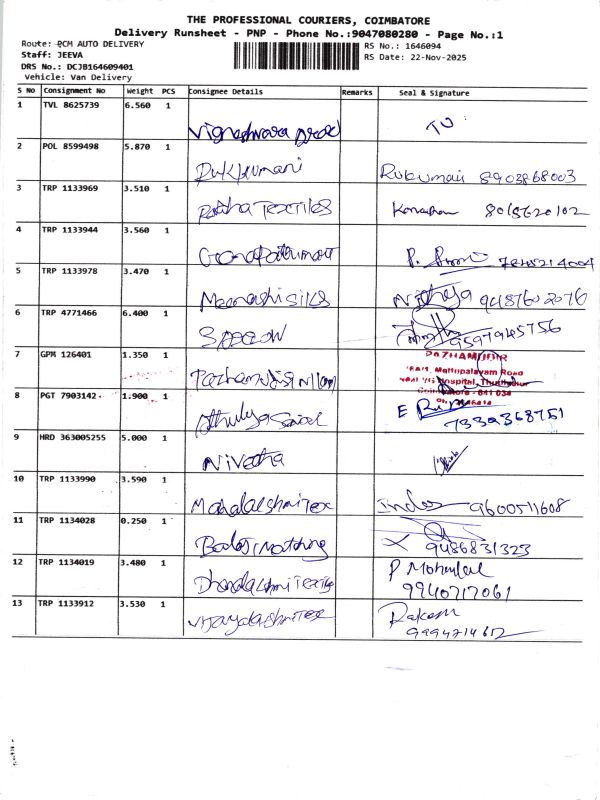 THE PROFESSIONAL COURIERS, COIMBATORE
Delivery Runsheet - PNP - Phone No.:9047080280 - Page No.:1
Route: PCM AUTO DELIVERY
RS No.: 1646094
Staff: JEEVA
RS Date: 22-Nov-2025
DRS No.: DCJB164609401
Vehicle: Van Delivery
S No Consignment No Weight PCS Consignee Details Remarks Seal & Signature
1 TVL 8625739 6.560 1
2 POL 8599498 5.870 1 Rukkumani Rukumani 8903868003
3 TRP 1133969 3.510 1 Textiles
4 TRP 1133944 3.560 1
5 TRP 1133978 3.470 1 Meenakshi silks Nithya 9487602076
6 TRP 4771466 6.400 1 9597945756
7 GPM 126401 1.350 1 PAZHAMUDIR
Mettupalayam Road
Hospital,
Coimbatore - 641 034
8 PGT 7903142 1.900 1 7339368751
9 HRD 363005255 5.000 1 Nivetha
10 TRP 1133990 3.590 1 Mahalakshmi Tex 9600511608
11 TRP 1134028 0.250 1 Matching 9486831323
12 TRP 1134019 3.480 1 P Mohanlal
9940717061
13 TRP 1133912 3.530 1 Vijayalakshmi Tex
9994714612